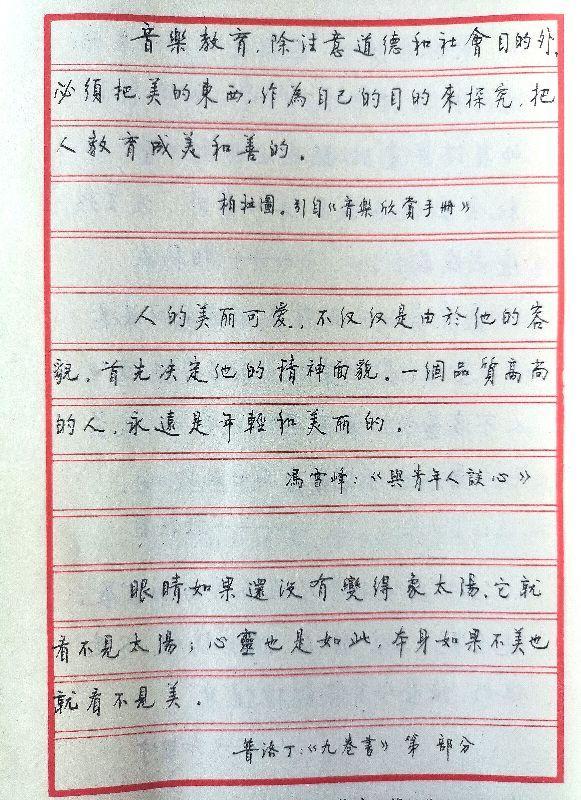 音樂教育，除注意道德和社會目的外，
必須把美的東西，作為自己的目的來探究，把
人教育成美和善的。
柏拉圖。引自《音樂欣賞手冊》
人的美丽可爱，不仅仅是由於他的容
貌，首先决定他的精神面貌。一個品質高尚
的人，永遠是年輕和美丽的。
馮雪峰：《與青年人談心》
眼睛如果還没有變得象太陽，它就
看不見太陽；心靈也是如此，本身如果不美也
就看不見美。
普洛丁：《九卷書》第 部分